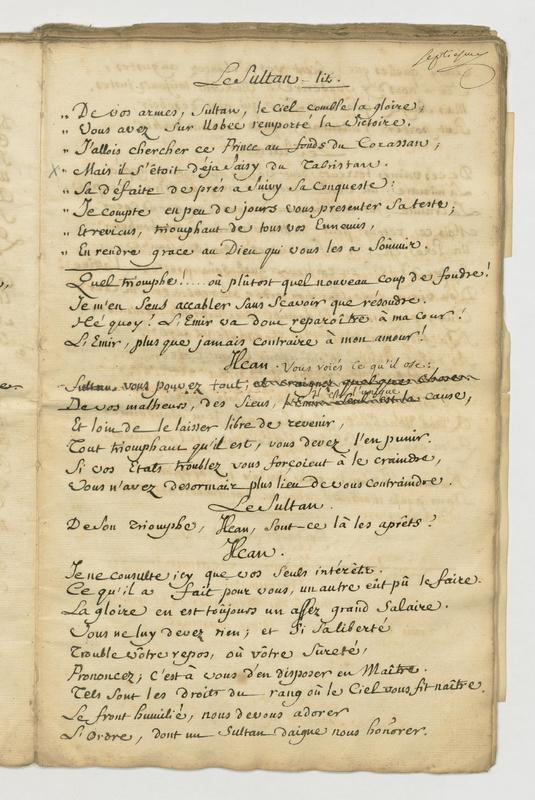 septiesme
Le Sultan lit.
" De vos armes, Sultan, le Ciel comble la gloire;
" Vous avez Sur Usbec remporté la Victoire.
" J'allois chercher ce Prince au fonds du Corassan;
x " Mais il S'étoit déja Saisy du Tabristan.
" Sa défaite de prés a Suivy Sa Conqueste:
" Je compte en peu de jours vous presenter Sa teste;
" Et reviens, triomphant de tous vos Ennemis,
" En rendre grace au Dieu qui vous les a Soûmis.
Quel triomphe!.... où plûtost quel nouveau coup de foudre!
Je m'en Sens accabler Sans Scavoir que resoudre.
Hé quoy! L'Emir va donc reparoître à ma cour!
L'Emir, plus que jamais contraire à mon amour!
Hcan. Vous voiés ce qu'il ose:
Sultan, vous pouvez tout; et craignez quelque chose.
De vos malheurs, des Siens, l'Emir Seul est la cause,
Et loin de le laisser libre de revenir,
Tout triomphant qu'il est, vous devez l'en punir.
Si vos Etats troublez vous forçoient à le craindre,
Vous n'avez desormais plus lieu de vous contraindre.
Le Sultan.
De Son Triomphe, Hcan, Sont-ce là les aprêts?
Hcan.
Je ne consulte icy que vos Seuls intérêts.
Ce qu'il a fait pour vous, un autre eût pû le faire.
La gloire en est toûjours un assez grand Salaire.
Vous ne luy devez rien; et Si Sa liberté
Trouble vôtre repos, où vôtre Sûreté,
Prononcez; C'est à vous d'en disposer en Maître.
Tels Sont les droits du rang où le Ciel vous fit naître.
Le front humilié, nous devons adorer
L'Ordre, dont un Sultan daigne nous honorer.